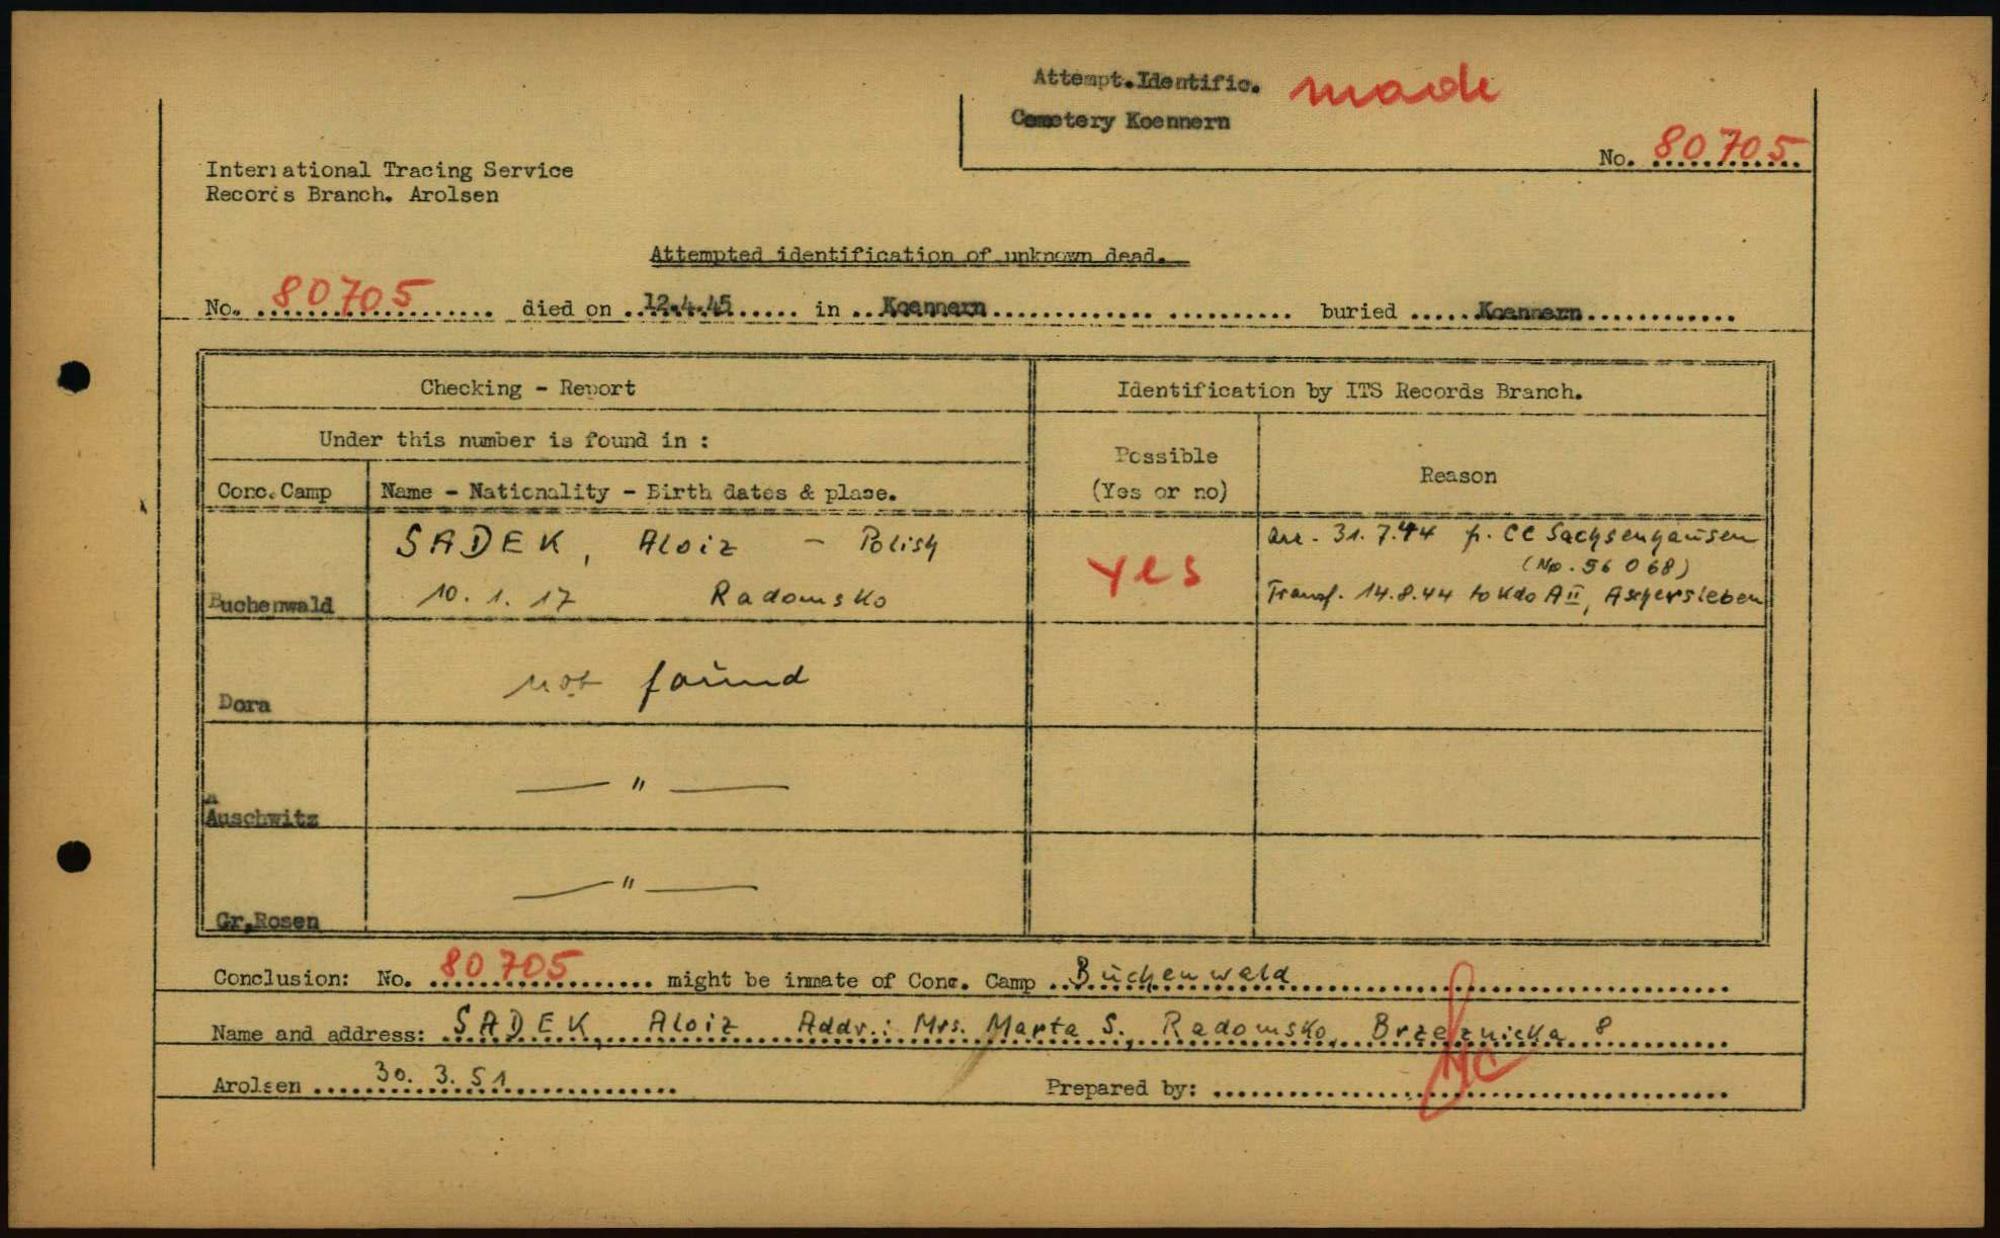 Attempt.Identific. made
Cemetery Koennern
No. 80705
International Tracing Service
Records Branch. Arolsen
Attempted identification of unknown dead.
No. 80705 died on 12.4.45 in Koennern buried Koennern
Checking - Report
Identification by ITS Records Branch.
Under this number is found in :
Possible
(Yes or no)
Reason
Conc. Camp
Name - Nationality - Birth dates & place.
SADEK, Aloiz - Polish
10. 1. 17 Radomsko
Buchenwald
yes
arr. 31.7.44 fr. CC Sachsenhausen
(No. 96 068)
Transf. 14.8.44 to Kdo A II, Aschersleben
not found
Dora
— " —
Auschwitz
— " —
Gr.Rosen
Conclusion: No. 80705 might be inmate of Conc. Camp Buchenwald
Name and address: SADEK, Aloiz Addr.: Mrs. Marta S., Radomsko, Brzeznicka 8
Arolsen 30. 3. 51
Prepared by: